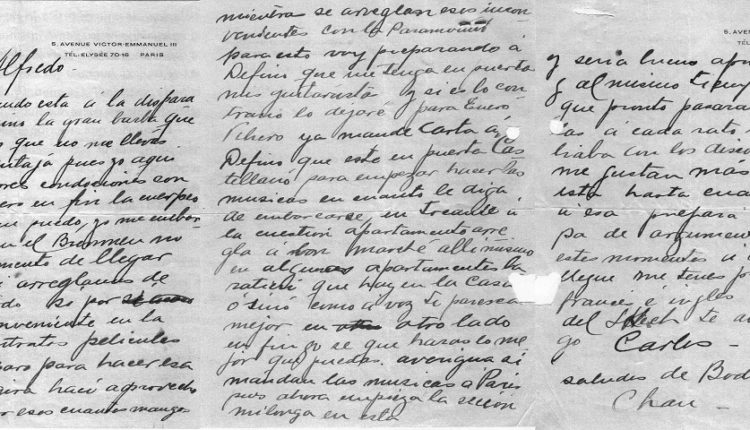 5, AVENUE VICTOR-EMMANUEL III
TÉL: ELYSÉE 70-16 PARIS
Alfredo
esta á la dispara
la gran barba que
que no me lleves
pues yo aqui
condiciones son
en fin la cuerpeo
puedo, yo me embar
el Bremen no
de llegar
arreglarnos de
so por
conveniente en la
peliculas
para hacer esa
gira haci aprovecho
esos cuantos mangos
mientra se arreglan esos incon
venientes con la Paramount
para esto voy preparando á
Defino que me tenga en puerta
mis guitarristas y si es lo con
trario lo dejaré para Enero
Febrero ya mande Carta á
Defino que este en puerta Cas
tellano para empezar hacer las
musicas en cuanto le diga
de embarcarse, en tocante á
la cuestion apartamento arre
gla á bon marché alli mismo
en algunos apartamentos ba
ratieri que hay en la casa
ó sinó como a voz te paresca
mejor en otro lado
en fin yo se que haras lo me
jor que puedas. averigua si
mandan las musicas á Paris
pues ahora empieza la seccion
milonga en esta
5, AVE
y seria bueno apro
y al mismo tiemp
que pronto pasara
á cada rato,
con los disco
me gustan más
esta hasta
á esa prepara
pa de argumen
estos momentos
llegue me tenes
francé é ingles
del te
go Carlos -
saludos de
Chau -